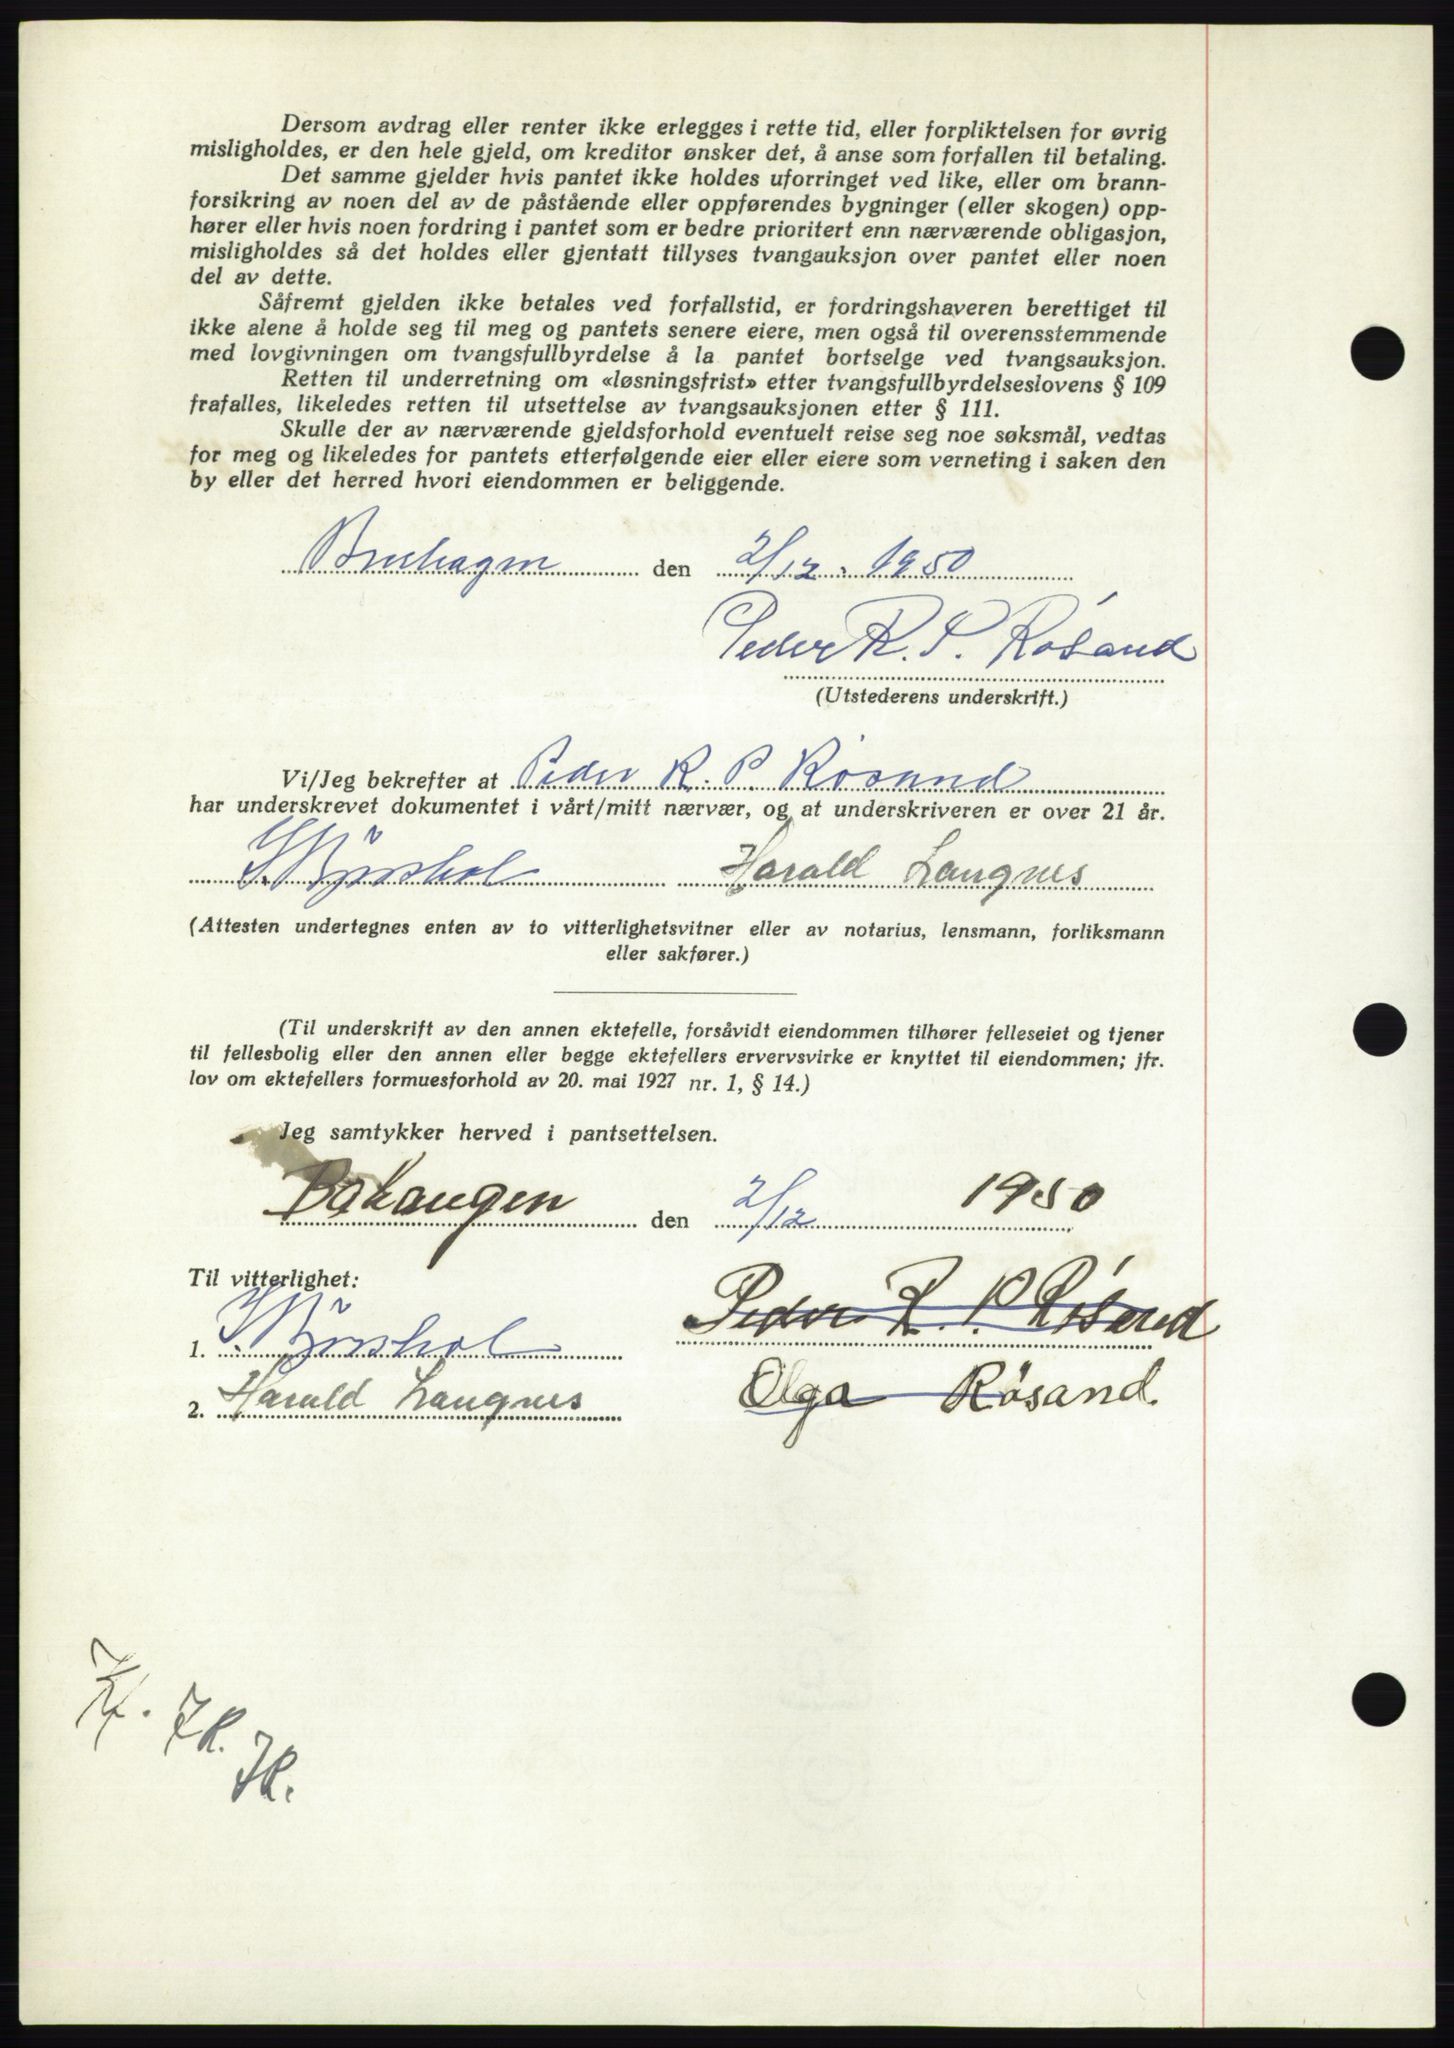 Dersom avdrag eller renter ikke erlegges i rette tid, eller forpliktelsen for øvrig
misligholdes, er den hele gjeld, om kreditor ønsker det, å anse som forfallen til betaling.
Det samme gjelder hvis pantet ikke holdes uforringet ved like, eller om brann-
forsikring av noen del av de påstående eller oppførendes bygninger (eller skogen) opp-
hører eller hvis noen fordring i pantet som er bedre prioritert enn nærværende obligasjon,
misligholdes så det holdes eller gjentatt tillyses tvangauksjon over pantet eller noen
del av dette.
Såfremt gjelden ikke betales ved forfallstid, er fordringshaveren berettiget til
ikke alene å holde seg til meg og pantets senere eiere, men også til overensstemmende
med lovgivningen om tvangsfullbyrdelse å la pantet bortselge ved tvangsauksjon.
Retten til underretning om «løsningsfrist» etter tvangsfullbyrdelseslovens § 109
frafalles, likeledes retten til utsettelse av tvangsauksjonen etter § 111.
Skulle der av nærværende gjeldsforhold eventuelt reise seg noe søksmål, vedtas
for meg og likeledes for pantets etterfølgende eier eller eiere som verneting i saken den
by eller det herred hvori eiendommen er beliggende.
Bruhagen den 2/12. 1950
Peder R. P. Rósand
(Utstederens underskrift.)
Vi/Jeg bekrefter at Peder R. P. Rósand
har underskrevet dokumentet i vårt/mitt nærvær, og at underskriveren er over 21 år.
Harald Langnes
(Attesten undertegnes enten av to vitterlighetsvitner eller av notarius, lensmann, forliksmann
eller sakfører.)
(Til underskrift av den annen ektefelle, forsåvidt eiendommen tilhører felleseiet og tjener
til fellesbolig eller den annen eller begge ektefellers ervervsvirke er knyttet til eiendommen; jfr.
lov om ektefellers formuesforhold av 20. mai 1927 nr. 1, § 14.)
Jeg samtykker herved i pantsettelsen.
den 2/12 1950
Til vitterlighet:
Peder R. P. Rósand
1.
Olga Rösand.
2. Harald Langnes